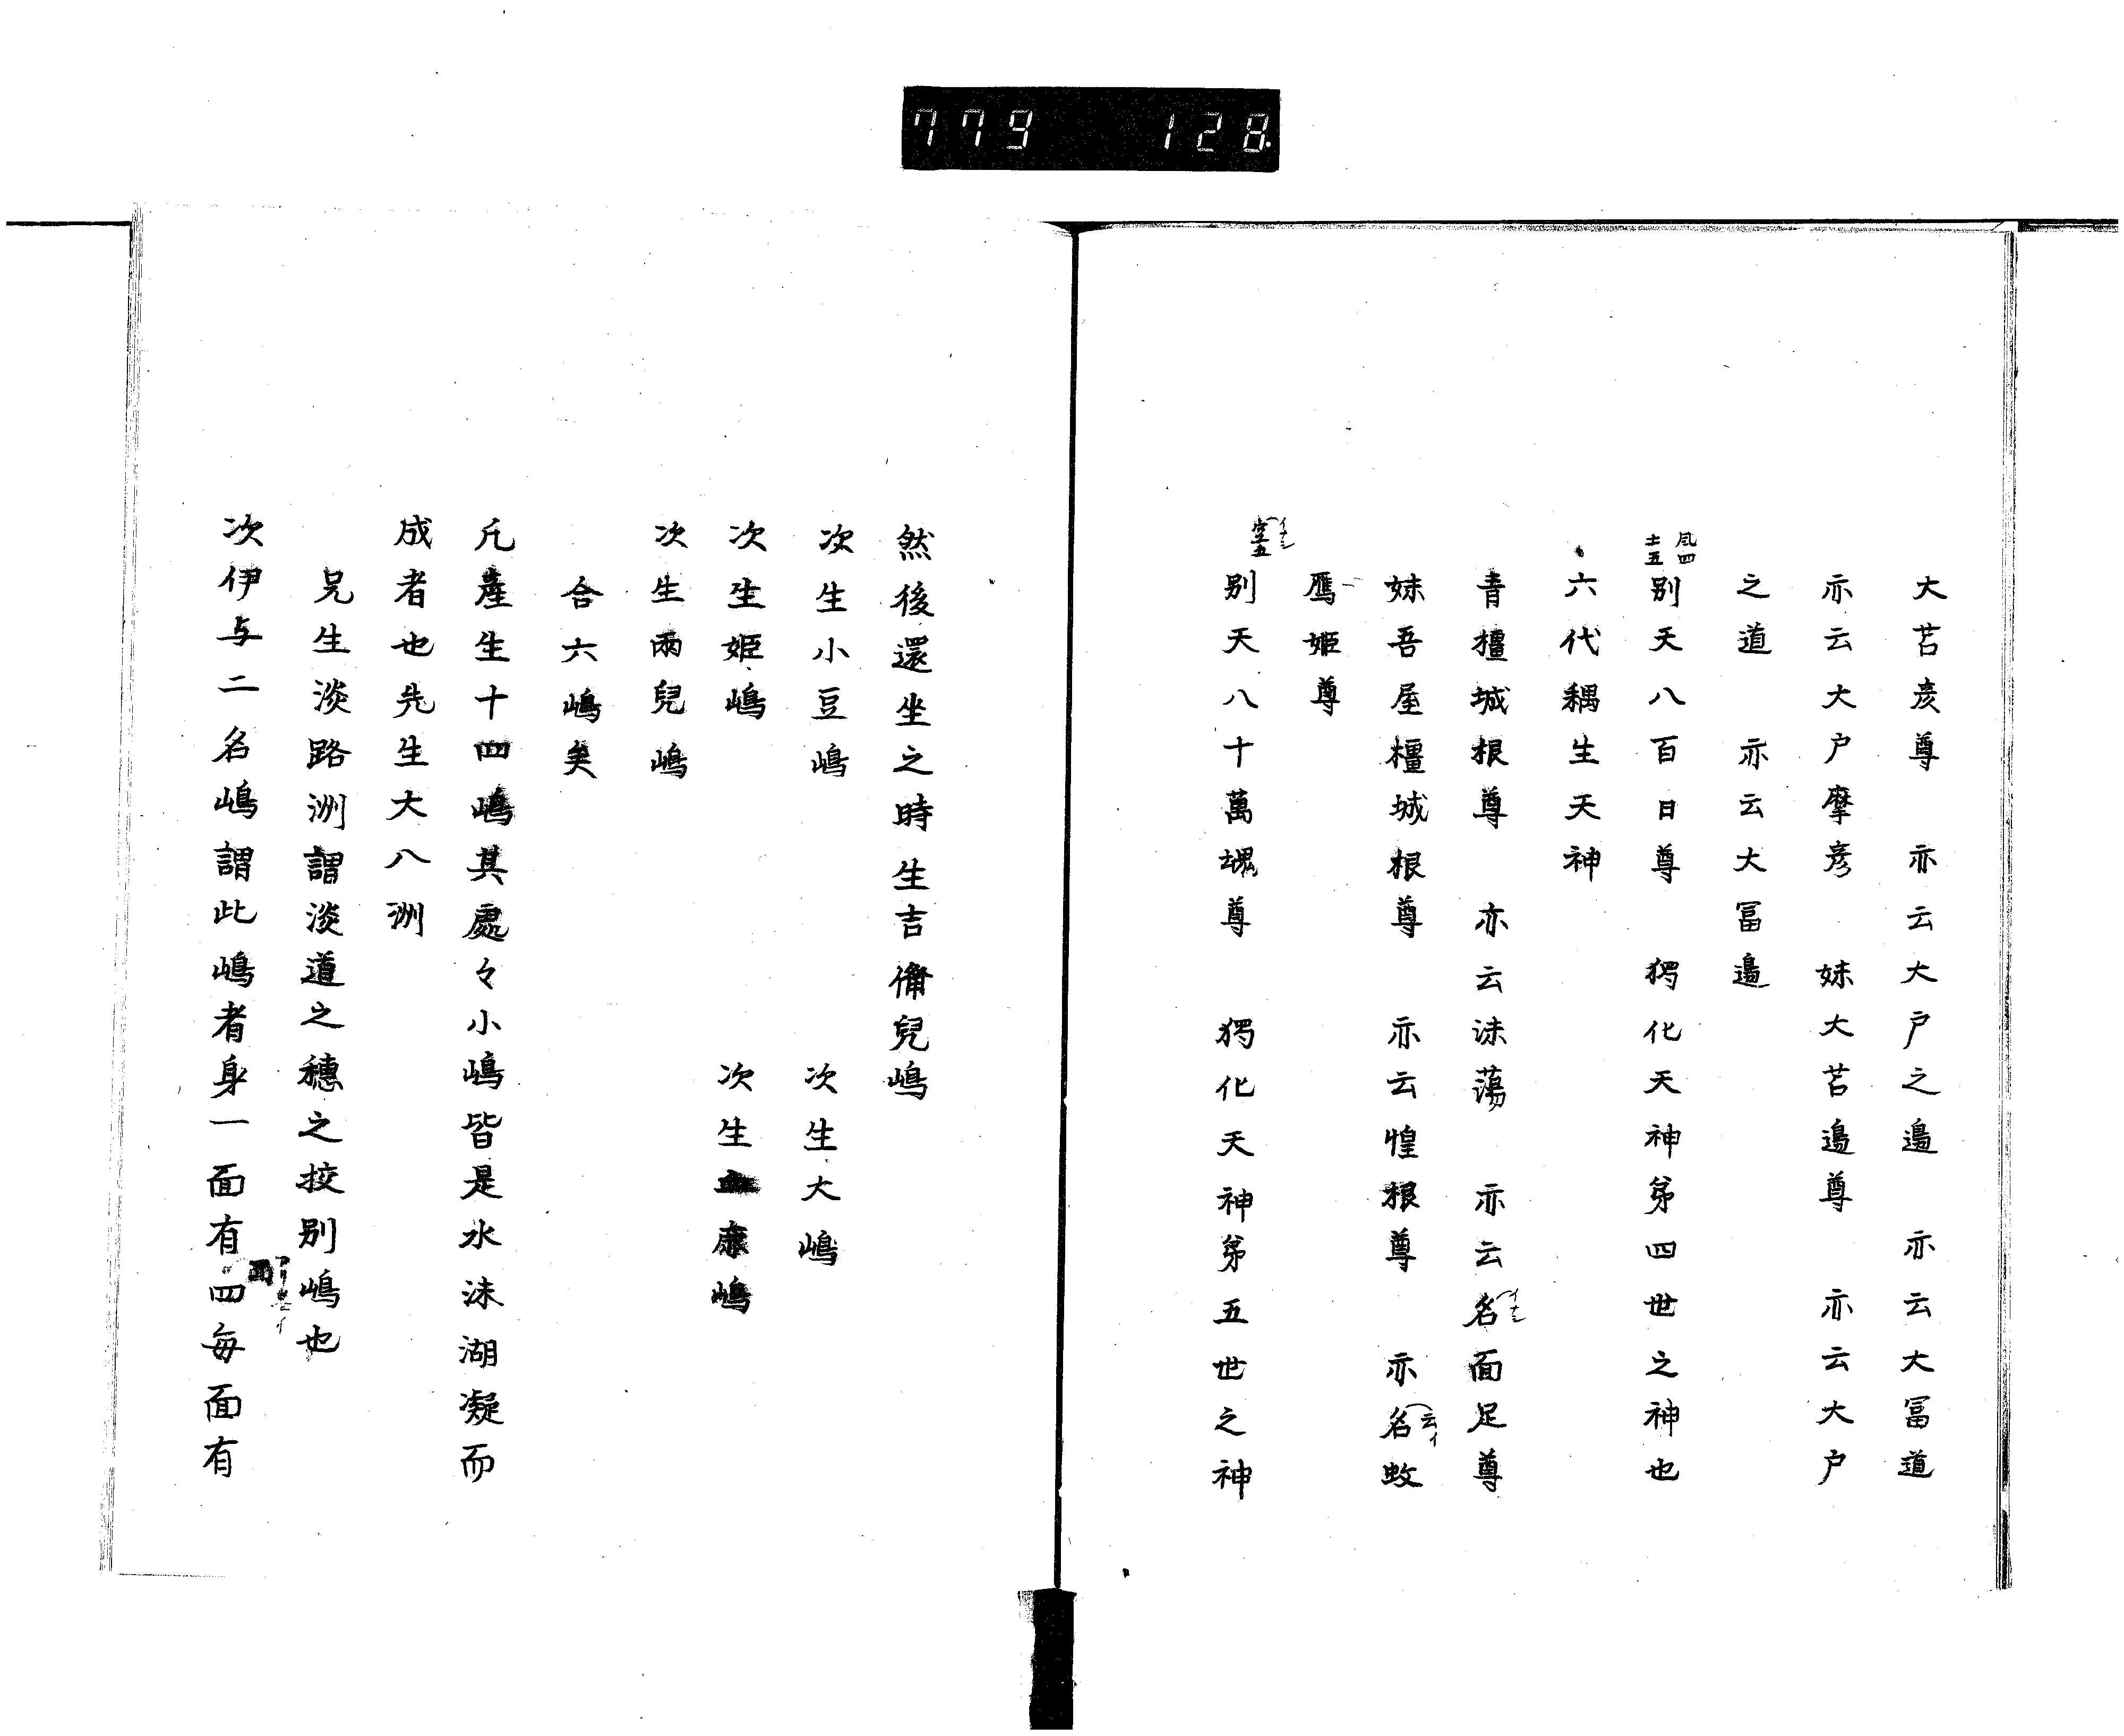 779 128
大苫彦尊 亦云大户之邉 亦云大冨道
亦云大户摩彦 妹大苫邉尊 亦云大户
之道 亦云大冨邉
風四
土五
别天八百日尊 獨化天神苐四世之神也
六代耦生天神
青橿城根尊 亦云沫蕩 亦云名面足尊
妹吾屋橿城根尊 亦云惶根尊 亦名蚊
云イ
鴈姬尊
空五
别天八十萬魂尊 獨化天神苐五世之神
然後還坐之時生吉俻兒嶋
次生小豆嶋 次生大嶋
次生姬嶋 次生血鹿嶋
次生兩兒嶋
合六嶋矣
凢産生十四嶋其處々小嶋皆是水沫湖凝而
成者也先生大八洲
兄生淡路洲謂淡道之穗之挍别嶋也
次伊与二名嶋謂此嶋者身一面有四每面有
面